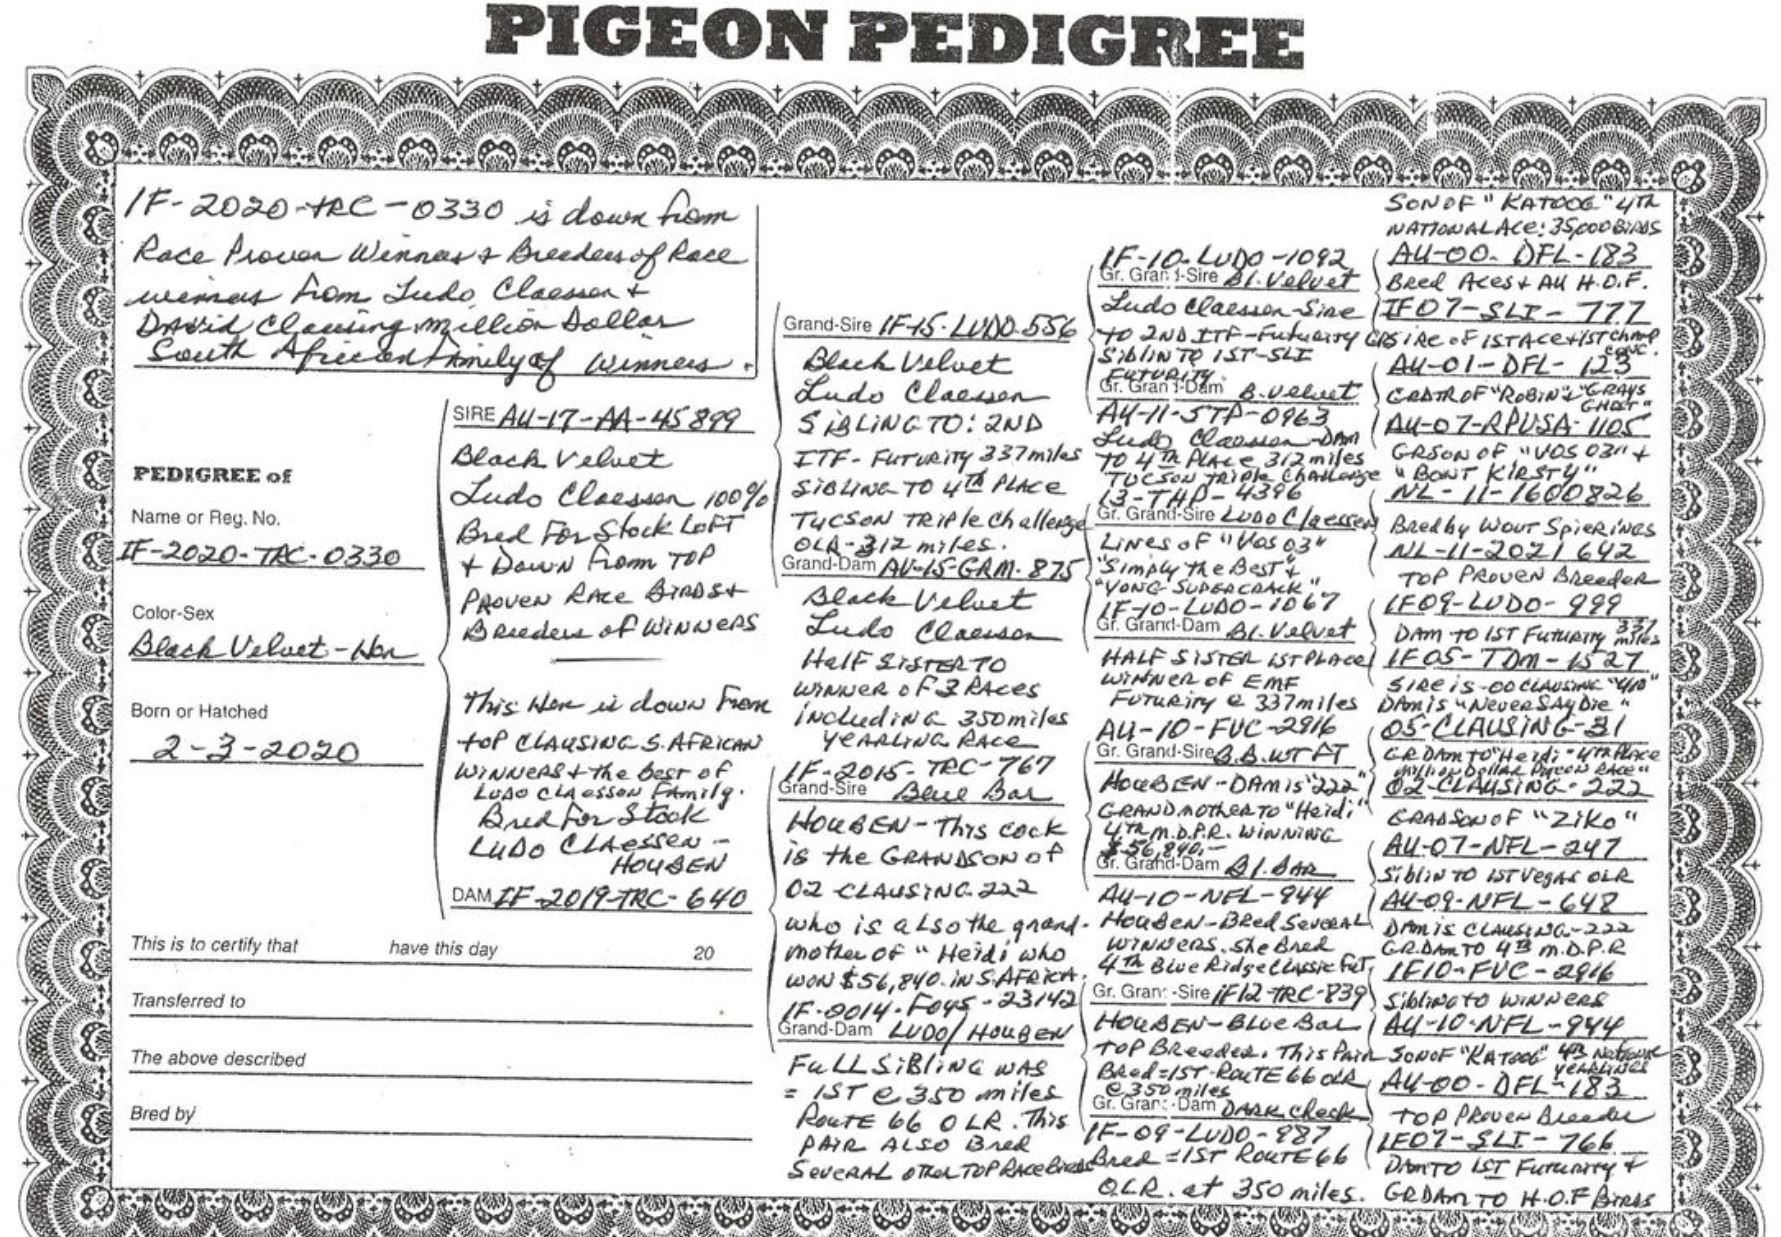 PIGEON PEDIGREE
IF-2020-TRC-0330 is down from
Race Proven Winners + Breeders of Race
winners from Ludo Claessen +
David Clausing Million Dollar
South African Family of Winners.
PEDIGREE of
Name or Reg. No.
IF-2020-TRC-0330
Color-Sex
Black Velvet-Hen
Born or Hatched
2-3-2020
This is to certify that have this day 20
Transferred to
The above described
Bred by
SIRE AU-17-AA-45899
Black Velvet
Ludo Claessen 100%
Bred For Stock Loft
+ Down From TOP
PROVEN RACE BIRDS +
Breeders of WINNERS
This Hen is down From
top CLAUSING S. AFRICAN
WINNERS + the best of
LUDO CLAESSON Family.
Bred For Stock
LUDO CLAESSEN -
HOUBEN
DAM IF-2019-TRC-640
Grand-Sire IF-15-LUDO-556
Black Velvet
Ludo Claessen
SIBLING TO: 2ND
ITF- FUTURITY 337 miles
SIBLING TO 4TH PLACE
TUCSON TRIPLE Challenge
OLR-312 miles.
Grand-Dam AU-15-GRM-875
Black Velvet
Ludo Claessen
HALF SISTER TO
WINNER OF 3 RACES
including 350 miles
YEARLING RACE
IF-2015-TRC-767
Grand-Sire Blue Bar
HOUBEN-This cock
is the GRANDSON OF
02 CLAUSING 222
who is also the grand-
mother of "Heidi who
WON $56,840. IN S. AFRICA.
IF-2014-Foys-23142
Grand-Dam LUDO/HOUBEN
FULL SIBLING WAS
= 1ST @ 350 miles
ROUTE 66 OLR. This
PAIR ALSO Bred
SEVERAL other TOP RACE Birds
IF-10-LUDO-1092
Gr. Grand-Sire Bl. Velvet
Ludo Claessen-Sire
TO 2ND ITF-Futurity
SIBLIN TO 1ST-SLI
FUTURITY.
Gr. Grand-Dam B. Velvet
AU-11-STP-0963
Ludo Claessen-DAM
TO 4TH PLACE 312 miles
TUCSON TRIPLE Challenge
13-THP-4396
Gr. Grand-Sire LUDO Claessen
LINES OF "VOS 03"
"Simply the Best" +
"YONG SUPERCRACK"
IF-10-LUDO-1067
Gr. Grand-Dam Bl. Velvet
HALF SISTER 1ST PLACE
WINNER OF EMF
FUTURITY @ 337 miles
AU-10-FVC-2916
Gr. Grand-Sire B.B. WT FT
HOUBEN-DAM is "222"
GRANDMOTHER TO "Heidi"
4TH M.D.P.R. WINNING
$56,840.-
Gr. Grand-Dam Bl. BAR
AU-10-NFL-944
HOUBEN-Bred SEVERAL
WINNERS. She Bred
4TH Blue Ridge Classic Fut.
Gr. Grand-Sire IF12-TRC-839
HOUBEN-BLUE Bar
TOP Breeder. This Pair
Bred=1ST-ROUTE 66 OLR
@ 350 miles
Gr. Grand-Dam DARK check
IF-09-LUDO-987
Bred=1ST ROUTE 66
OLR. at 350 miles.
SON OF "KATOOG" 4TH
NATIONAL ACE: 35,000 BIRDS
AU-00-DFL-183
Bred Aces + AU H.O.F.
IF07-SLI-777
GRSIRE OF 1ST ACE + 1ST CHAMP
AU-01-DFL-123
GRDTR OF "ROBIN" + "GRAYS
GHOST"
AU-07-RPUSA-1105
GRSON OF "VOS 03" +
"BONT KIRSTY"
NL-11-1600826
Bred by WOUT SPIERINGS
NL-11-2021642
TOP PROVEN Breeder
IF09-LUDO-999
DAM TO 1ST FUTURITY 337
miles
IF05-TDM-1527
SIRE is -00 CLAUSING "410"
DAM is "NEVER SAY DIE"
05-CLAUSING-31
GRDAM TO "Heidi" 4TH PLACE
"Million Dollar Pigeon RACE"
02-CLAUSING-222
GRADSON OF "ZIKO"
AU-07-NFL-247
SIBLIN TO 1ST VEGAS OLR
AU-09-NFL-648
DAM is CLAUSING-222
GRDAM TO 4TH M.D.P.R
IF10-FVC-2916
Sibling to WINNERS
AU-10-NFL-944
SON OF "KATOOG" 4TH National
YEARLINGS
AU-00-DFL-183
TOP PROVEN Breeder
IF07-SLI-766
DAM TO 1ST FUTURITY +
GRDAM TO H.O.F BIRDS